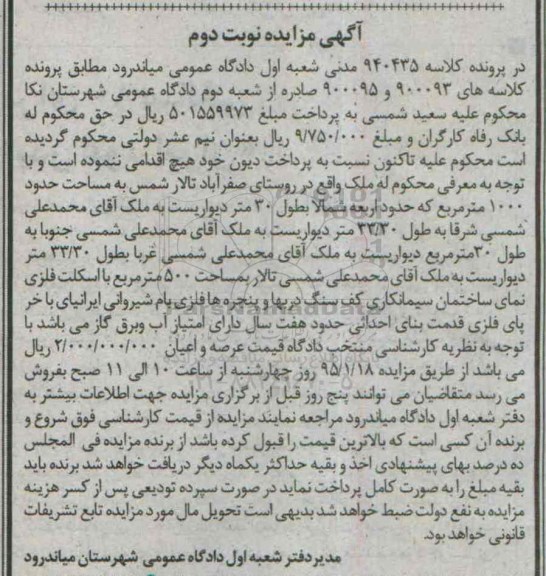 آگهی مزایده نوبت دوم
در پرونده کلاسه ۹۴۰۴۳۵ مدنی شعبه اول دادگاه عمومی میاندرود مطابق پرونده
کلاسه های ۹۰۰۰۹۳ و ۹۰۰۰۹۵ صادره از شعبه دوم دادگاه عمومی شهرستان نکا
محکوم علیه سعید شمسی به پرداخت مبلغ ۵۰۱۵۵۹۹۷۳ ریال در حق محکوم له
بانک رفاه کارگران و مبلغ ۹/۷۵۰/۰۰۰ ریال بعنوان نیم عشر دولتی محکوم گردیده
است محکوم علیه تاکنون نسبت به پرداخت دیون خود هیچ اقدامی ننموده است و با
توجه به معرفی محکوم له ملک واقع در روستای صفرآباد تالار شمس به مساحت حدود
۱۰۰۰ مترمربع که حدود اربعه شمالا بطول ۳۰ متر دیواریست به ملک آقای محمدعلی
شمسی شرقا به طول ۳۳/۳۰ متر دیواریست به ملک آقای محمدعلی شمسی جنوبا به
طول ۳۰مترمربع دیواریست به ملک آقای محمدعلی شمسی غربا بطول ۳۳/۳۰ متر
دیواریست به ملک آقای محمدعلی شمسی تالار بمساحت ۵۰۰ مترمربع با اسکلت فلزی
نمای ساختمان سیمانکاری کف سنگ دربها و پنجره ها فلزی بام شیروانی ایرانیای با خر
پای فلزی قدمت بنای احداثی حدود هفت سال دارای امتیاز آب وبرق گاز می باشد با
توجه به نظریه کارشناسی منتخب دادگاه قیمت عرصه و اعیان ۲/۰۰۰/۰۰۰/۰۰۰ ریال
می باشد از طریق مزایده ۹۵/۱/۱۸ روز چهارشنبه از ساعت ۱۰ الی ۱۱ صبح بفروش
می رسد متقاضیان می توانند پنج روز قبل از برگزاری مزایده جهت اطلاعات بیشتر به
دفتر شعبه اول دادگاه میاندرود مراجعه نمایند مزایده از قیمت کارشناسی فوق شروع و
برنده آن کسی است که بالاترین قیمت را قبول کرده باشد از برنده مزایده فی المجلس
ده درصد بهای پیشنهادی اخذ و بقیه حداکثر یکماه دیگر دریافت خواهد شد برنده باید
بقیه مبلغ را به صورت کامل پرداخت نماید در صورت سپرده تودیعی پس از کسر هزینه
مزایده به نفع دولت ضبط خواهد شد بدیهی است تحویل مال مورد مزایده تابع تشریفات
قانونی خواهد بود.
مدیر دفتر شعبه اول دادگاه عمومی شهرستان میاندرود